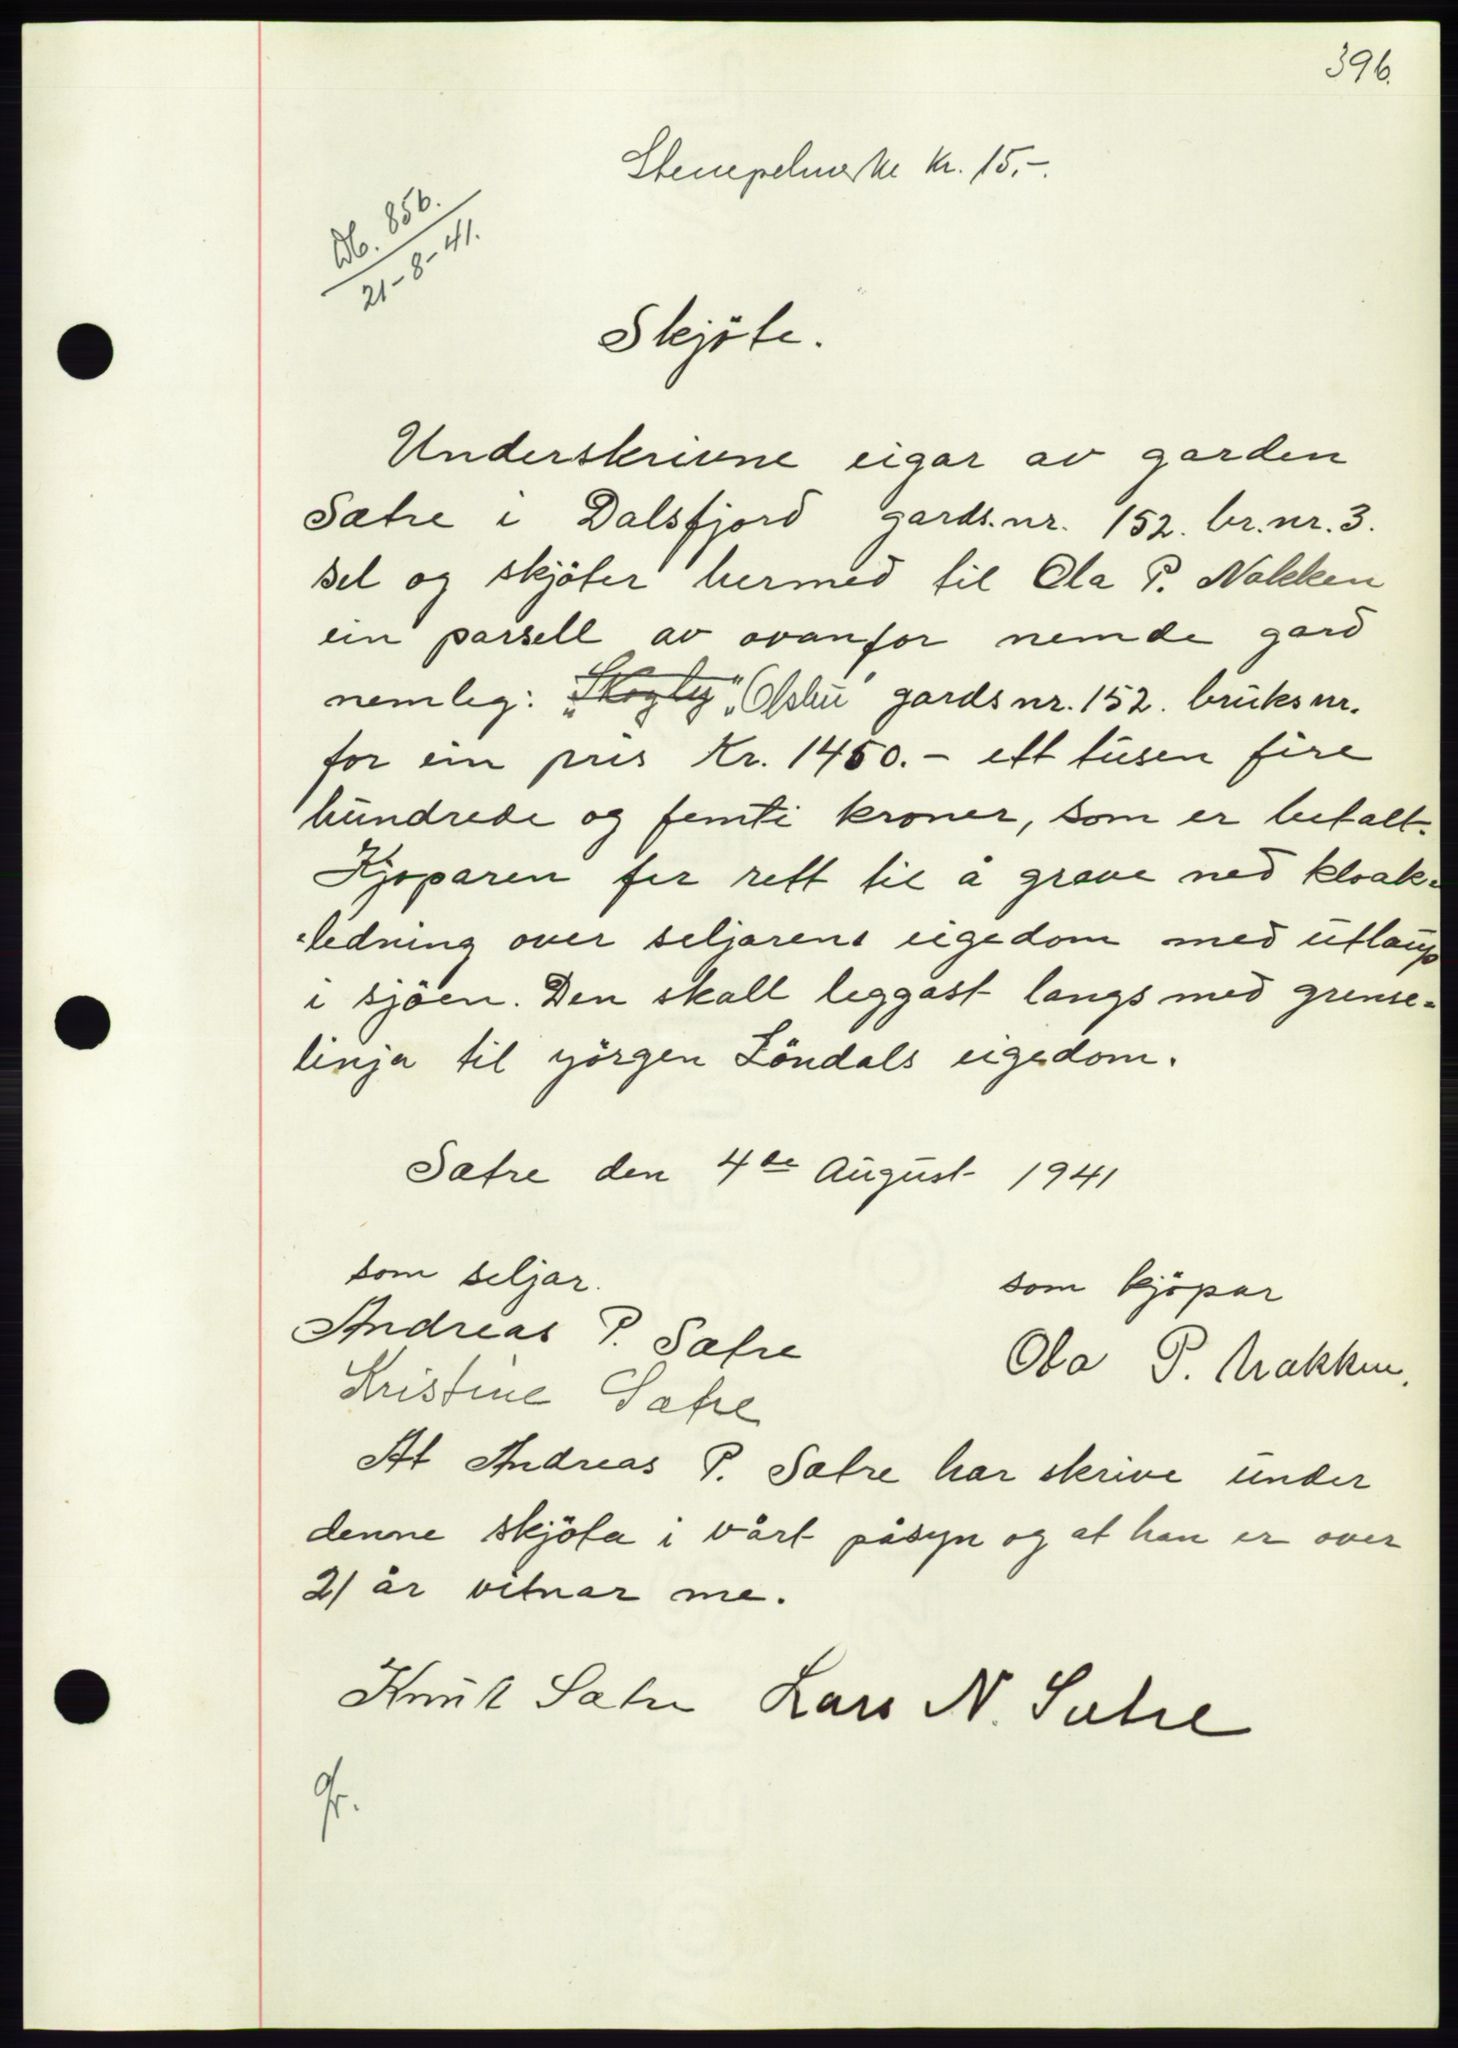 396.
Stempelmerke kr. 15,-.
Db. 856.
21-8-41.
Skjöte.
Underskrivne eigar av garden
Sætre i Dalsfjord gards.nr. 152. br.nr. 3.
sel og skjöter hermed til Ola P. Nakken
ein parsell av ovanfor nemde gard
nemleg: "Skogly" "Olsbu" gards nr. 152. bruks nr.
for ein pris Kr. 1450.- ett tusen fire
hundrede og femti kroner, som er betalt.
Kjoparen fer rett til å grave ned kloak-
-ledning over seljarens eigedom med utlaup
i sjöen. Den skall leggast langs med grense-
linja til Jörgen Löndals eigedom.
Sætre den 4de August 1941
som seljar.
Andreas P. Sætre
Kristine Sætre
som kjöpar
Ola P. Nakken.
At Andreas P. Sætre har skrive under
denne skjöta i vårt påsyn og at han er over
21 år vitnar me.
Knut Sætre Lars N. Sætre